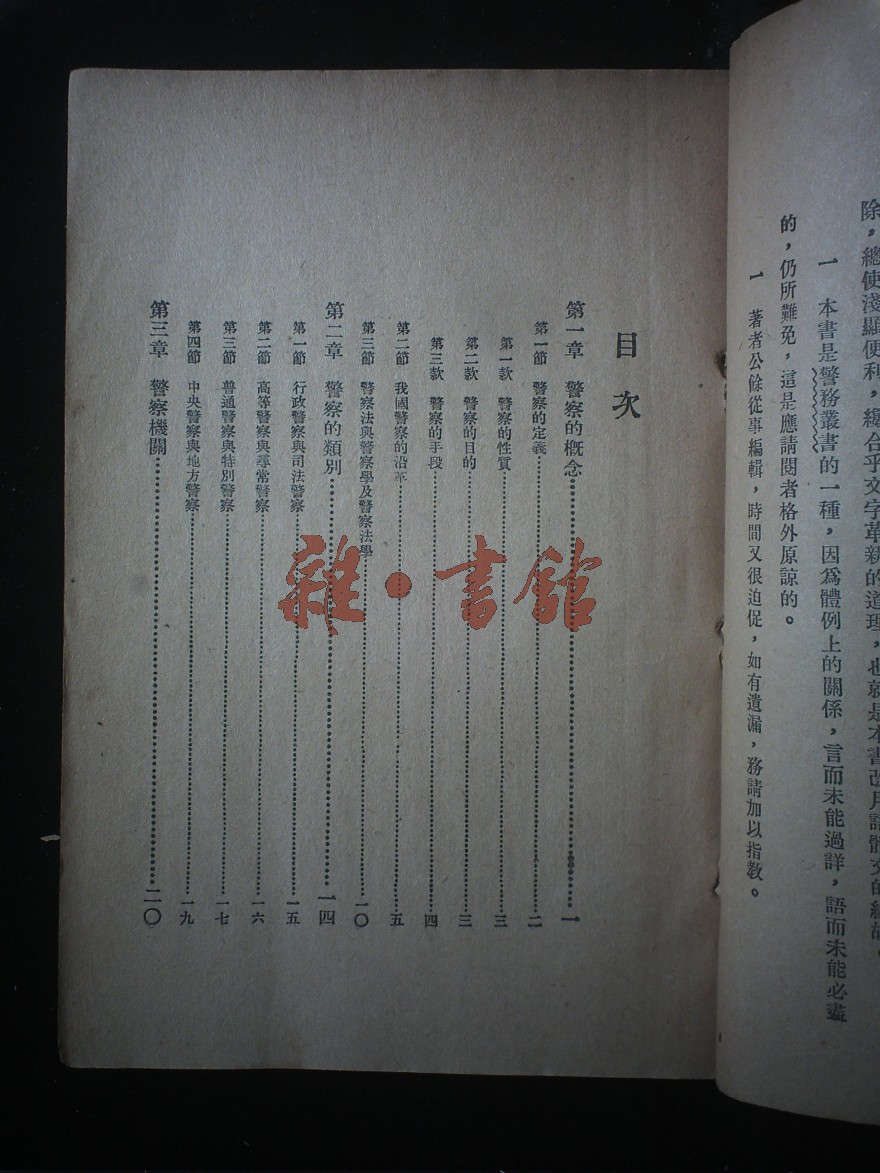 除，總使淺顯便利，纔合乎文字革新的道理，也就是本書改用語體文的緣故。
一　本書是警務叢書的一種，因為體例上的關係，言而未能過詳，語而未能必盡
的，仍所難免，這是應請閱者格外原諒的。
一　著者公餘從事編輯，時間又很迫促，如有遺漏，務請加以指教。
目次
第一章　警察的概念……一
第一節　警察的定義……二
第一款　警察的性質……三
第二款　警察的目的……三
第三款　警察的手段……四
第二節　我國警察的沿革……五
第三節　警察法與警察學及警察法學……一〇
第二章　警察的類別……一四
第一節　行政警察與司法警察……一五
第二節　高等警察與尋常警察……一六
第三節　普通警察與特別警察……一七
第四節　中央警察與地方警察……一九
第三章　警察機關……二〇
雜·書館